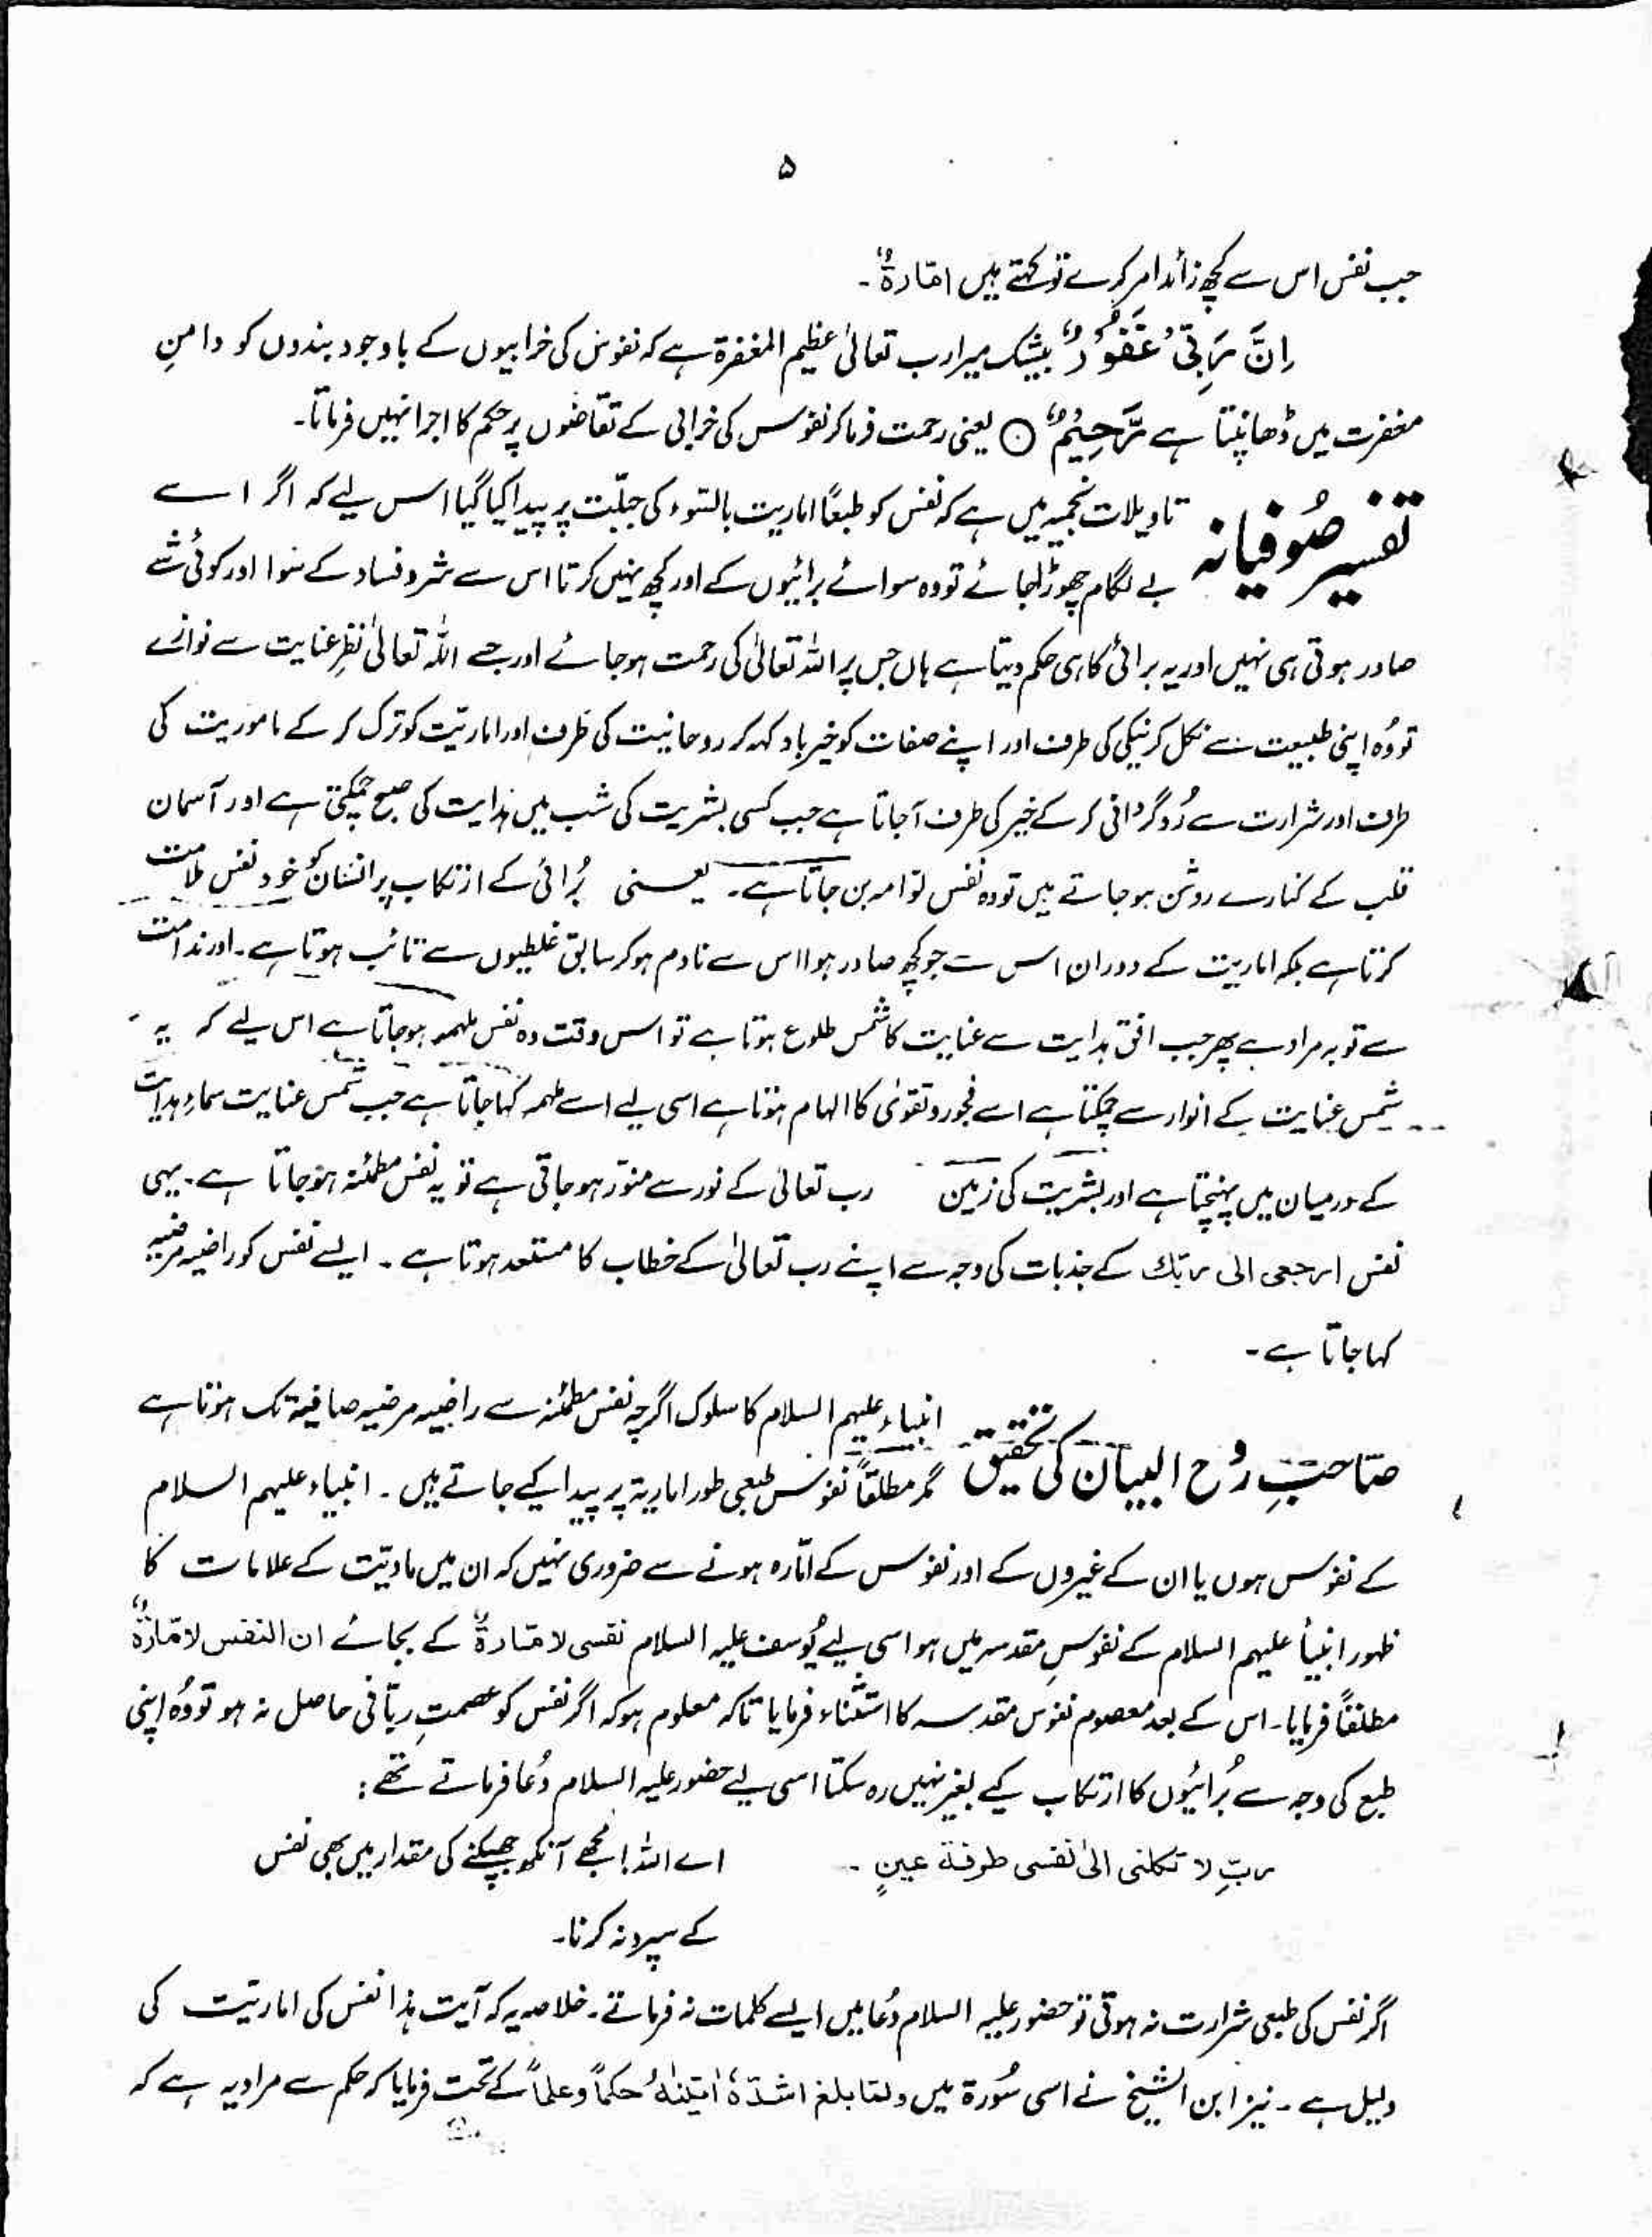 ۵
جب نفس اس سے کچھ زائد امر کرے تو کہتے ہیں امّارۃٌ۔
اِنَّ رَبِّیْ غَفُوْرٌ بیشک میرا رب تعالیٰ عظیم المغفرۃ ہے کہ نفوس کی خرابیوں کے باوجود بندوں کو دامنِ
مغفرت میں ڈھانپتا ہے رَّحِیْمٌ ۝ یعنی رحمت فرما کر نفوس کی خرابی کے تقاضوں پر حکم کا اجرا نہیں فرماتا۔
تفسیر صُوفیانہ
تاویلات نجمیہ میں ہے کہ نفس کو طبعًا اماریت بالسّوء کی جبلّت پر پیدا کیا گیا اس لیے کہ اگر اسے
بے لگام چھوڑا جائے تو وہ سوائے برائیوں کے اور کچھ نہیں کرتا اس سے شر و فساد کے سوا اور کوئی شے
صادر ہوتی ہی نہیں اور یہ برائی کا ہی حکم دیتا ہے ہاں جس پر اللہ تعالیٰ کی رحمت ہو جائے اور جسے اللہ تعالیٰ نظرِ عنایت سے نوازے
تو وُہ اپنی طبیعت سے نکل کر نیکی کی طرف اور اپنے صفات کو خیر باد کہہ کر روحانیت کی طرف اور اماریّت کو ترک کر کے ماموریت کی
طرف اور شرارت سے رُوگردانی کر کے خیر کی طرف آجاتا ہے جب کسی بشریت کی شب میں ہدایت کی صبح چمکتی ہے اور آسمان
قلب کے کنارے روشن ہو جاتے ہیں تو وہ نفس لوّامہ بن جاتا ہے۔ یعنی بُرائی کے ارتکاب پر انسان کو خود نفس ملامت
کرتا ہے بلکہ اماریت کے دوران اس سے جو کچھ صادر ہوا اس سے نادم ہو کر سابق غلطیوں سے تائب ہوتا ہے۔ اور ندامت
سے توبہ مراد ہے پھر جب افق ہدایت سے عنایت کا شمس طلوع ہوتا ہے تو اس وقت وہ نفس ملہمہ ہو جاتا ہے اس لیے کہ یہ
شمس عنایت کے انوار سے چمکتا ہے اسے فجور و تقویٰ کا الہام ہوتا ہے اسی لیے اسے ملہمہ کہا جاتا ہے جب شمس عنایت سماءِ ہدایت
کے درمیان میں پہنچتا ہے اور بشریت کی زمین رب تعالیٰ کے نور سے منوّر ہو جاتی ہے تو یہ نفس مطمئنہ ہو جاتا ہے۔ یہی
نفس ارجعی الی ربّک کے جذبات کی وجہ سے اپنے رب تعالیٰ کے خطاب کا مستعد ہوتا ہے۔ ایسے نفس کو راضیہ مرضیہ
کہا جاتا ہے۔
صاحبِ رُوح البیان کی تحقیق
انبیاء علیہم السلام کا سلوک اگرچہ نفس مطمئنہ سے راضیہ مرضیہ صافیہ تک ہوتا ہے
مگر مطلقًا نفوس طبعی طور اماریۃ پر پیدا کیے جاتے ہیں۔ انبیاء علیہم السلام
کے نفوس ہوں یا ان کے غیروں کے اور نفوس کے امّارہ ہونے سے ضروری نہیں کہ ان میں مادیّت کے علامات کا
ظہور انبیأ علیہم السلام کے نفوسِ مقدسہ میں ہو اسی لیے یُوسف علیہ السلام نفسی لامّارۃٌ کے بجائے ان النفس لامّارۃٌ
مطلقًا فرمایا۔ اس کے بعد معصوم نفوس مقدسہ کا استثناء فرمایا تاکہ معلوم ہو کہ اگر نفس کو عصمتِ ربّانی حاصل نہ ہو تو وُہ اپنی
طبع کی وجہ سے بُرائیوں کا ارتکاب کیے بغیر نہیں رہ سکتا اسی لیے حضور علیہ السلام دُعا فرماتے تھے:
ربِّ لا تکلنی الیٰ نفسی طرفۃ عینٍ۔ اے اللہ! مجھے آنکھ جھپکنے کی مقدار میں بھی نفس
کے سپرد نہ کرنا۔
اگر نفس کی طبعی شرارت نہ ہوتی تو حضور علیہ السلام دُعا میں ایسے کلمات نہ فرماتے۔ خلاصہ یہ کہ آیت ہٰذا نفس کی اماریّت کی
دلیل ہے۔ نیز ابن الشیخ نے اسی سُورۃ میں ولمّا بلغ اشدّہٗ اٰتینٰہُ حکماً وعلماً کے تحت فرمایا کہ حکم سے مراد یہ ہے کہ